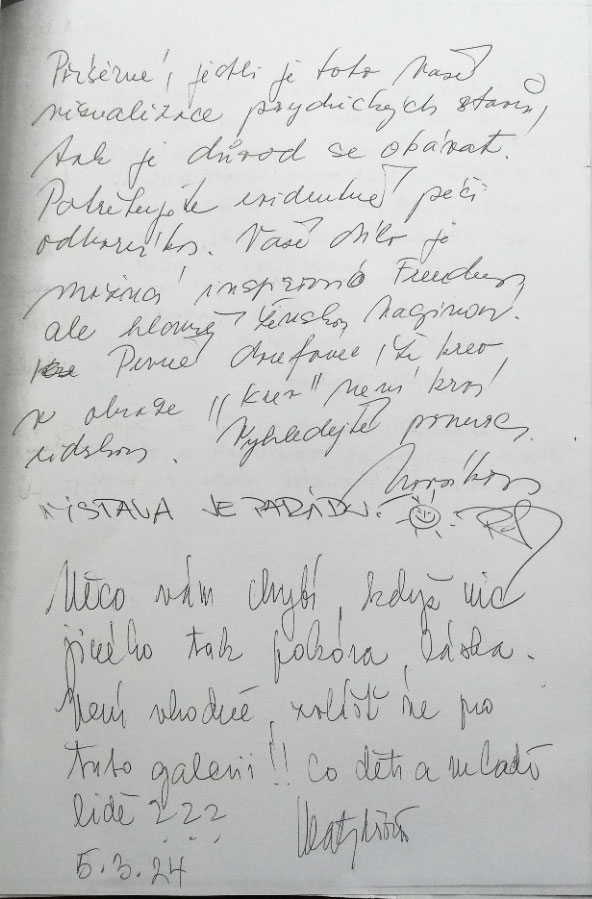 Příšerné, jestli je toto Vaše
vizualizace psychických stavů,
tak je důvod se obávat.
Potřebujete evidentně péči
odborníkov. Vaše dílo je
možná inspirováno Freudem,
ale hlavně ženskou vaginou.
Pevně doufame, že krev
v obraze "krev" není krví
lidskou. Vyhledejte pomoc.
Nováková
VÝSTAVA JE PARÁDNÍ.
Něco vám chybí, když nic
jiného tak pokora, láska.
Není vhodné, zvlášť ne pro
tuto galerii!! Co děti a mladí
lidé ???
5.3.24